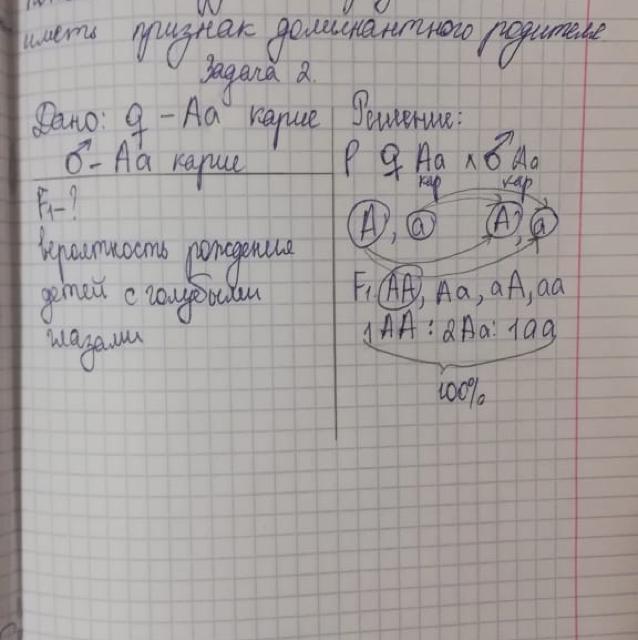 иметь признак доминантного родителя
Задача 2.
Дано: ♀ - Аа карие
♂ - Аа карие
F₁-?
вероятность рождения
детей с голубыми
глазами
Решение:
P ♀ Аа х ♂ Аа
кар кар
А, а А, а
F₁ АА, Аа, аА, аа
1АА : 2Аа : 1аа
100%